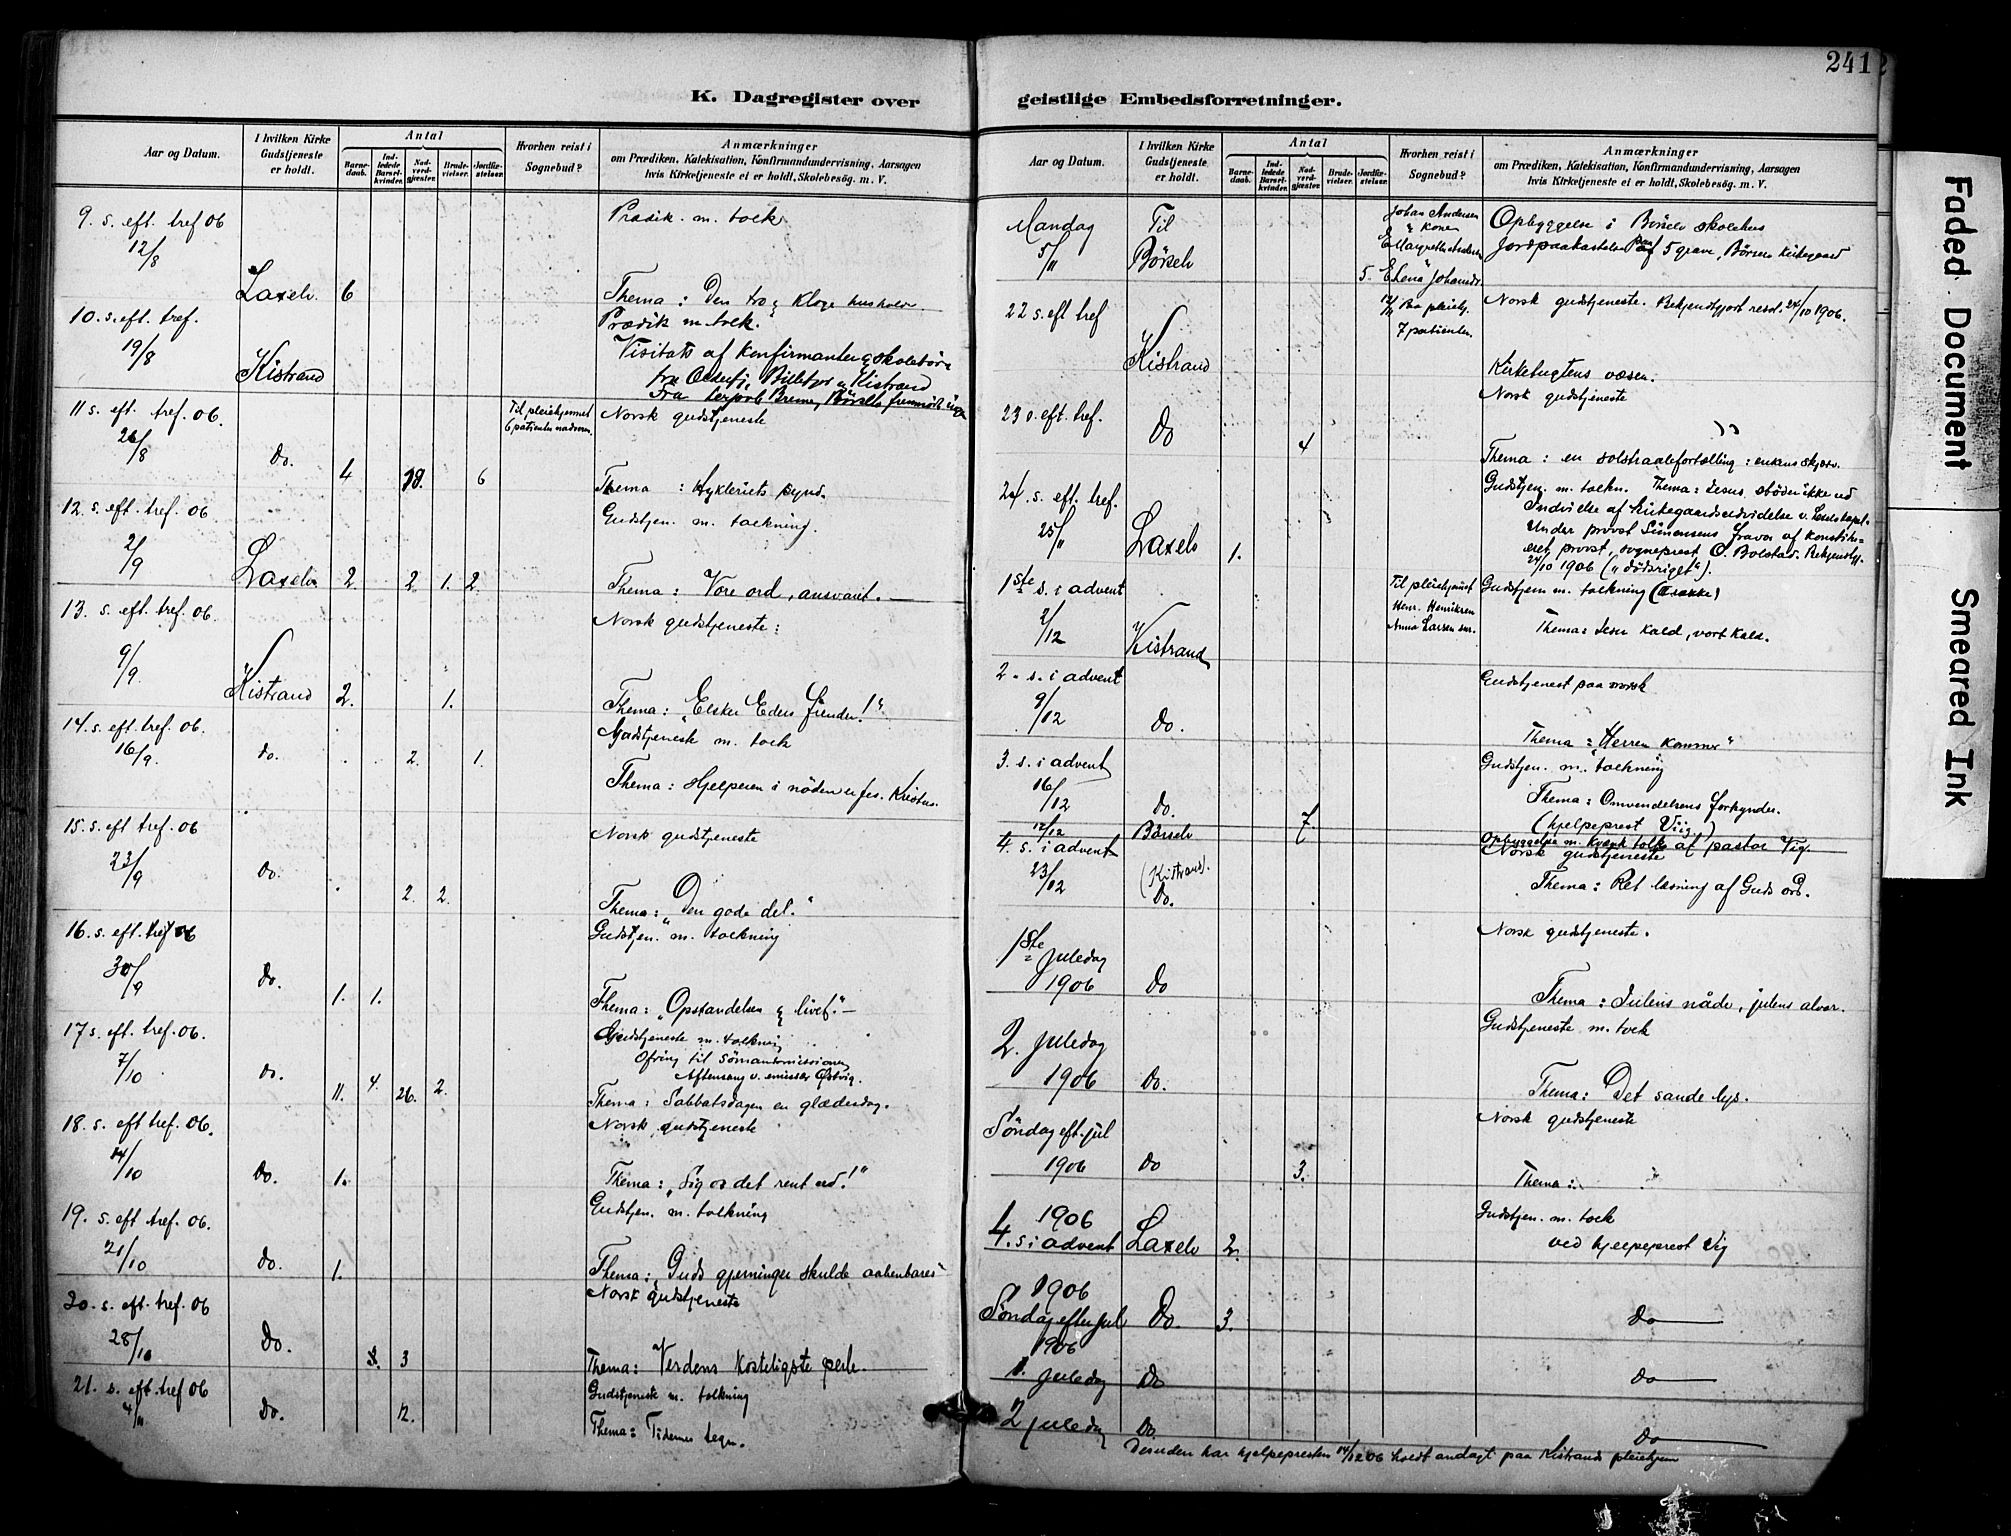 241
K. Dagregister over geistlige Embedsforretninger.
Aar og Datum.
I hvilken Kirke Gudstjeneste er holdt.
Antal
Barnedaab.
Indledede Barselkvinder.
Nadverdgjester.
Brudevielser.
Jordfæstelser.
Hvorhen reist i Sognebud?
Anmærkninger
om Prædiken, Katekisation, Konfirmandundervisning, Aarsagen
hvis Kirketjeneste ei er holdt, Skolebesøg. m. V.
9. s. eft. tref 06
12/8
Laxelv. 6
Prædik. m. tolk
Thema: Den tro og kloge husholder.
10. s. eft. tref.
19/8
Kistrand
Prædik m. tolk.
Visitats af konfirmanter og skolebørn
fra Billefjor og Kistrand
11 s. eft. tref. 06.
26/8
Do. 4 18. 6
Til pleiehjemmet
6 patienter nadveren.
Norsk gudstjeneste
Thema: Hykleriets synd.
12. s. eft. tref. 06
2/9
Laxelv 2. 2. 1. 2.
Gudstjen. m. tolkning.
Thema: Vore ord, ansvaret.
13. s. eft. tref. 06.
9/9
Kistrand 2. 1.
Norsk gudstjeneste:
Thema: „Elsker Eders fiender!"
14. s. eft. tref. 06.
16/9.
do. 2. 1.
Gudstjeneste m. tolk
Thema: Hjelperen i nöden er Jes. Kristus.
15. s. eft tref. 06
23/9
do. 2. 2.
Norsk gudstjeneste
Thema: „Den gode del."
16. s. eft. tref 06
30/9
Do. 1. 1.
Gudstjen. m. tolkning
Thema: „Opstandelsen og livet".
17 s. eft. tref. 06.
7/10
do. 11. 4. 26. 2.
Gudstjeneste m. tolkning
Ofring til sömandsmissionen
Aftensang v. emissær Östvig.
Thema: Sabbatsdagen en glædesdag.
18. s. eft tref. 06.
14/10
Do. 1.
Norsk gudstjeneste
Thema: „Sig os det rent ud!"
19. s. eft tref. 06.
21/10
do. 1.
Gudstjen. m. tolkning
Thema: „Guds gjerninger skulde aabenbares"
20. s. eft. tref. 06
28/10
Do. 3
Norsk gudstjeneste
Thema: Verdens kosteligste perle.
21. s. eft. tref 06
4/11
Do. 12.
Gudstjeneste m. tolkning
Thema: Tidernes tegn.
Aar og Datum.
I hvilken Kirke Gudstjeneste er holdt.
Antal
Barnedaab.
Indledede Barselkvinder.
Nadverdgjester.
Brudevielser.
Jordfæstelser.
Hvorhen reist i Sognebud?
Anmærkninger
om Prædiken, Katekisation, Konfirmandundervisning, Aarsagen
hvis Kirketjeneste ei er holdt, Skolebesøg. m. V.
Mandag
5/11
Til
Börselv
5.
Johan Andersen
" Kone
Elena Johansdr.
Opbyggelse i Börselv skolehus
Jordpaakastelse paa 5 grave, Börselv Kirkegaard
22 s. eft tref
Kistrand
Paa pleiehj.
7 patienter
Norsk gudstjeneste. Bekjendtgjort resol. 24/10 1906.
Kirketugtens væsen.
23 s. eft. tref.
Do 4
Norsk gudstjeneste
Thema: en solstraalefortælling: enkens skjærv.
24. s. eft. tref.
25/11
Laxelv 1.
Gudstjen. m. tolkn. Thema: Jesus støder ikke ud
Indvielse af kirkegaardsudvidelse v. Laxelv kapel.
Under provst Simonsens fravær af konstitueret
provst, sogneprest O. Bolstad.
24/10 1906 („dödsriget").
1ste s. i advent
2/12
Kistrand
Til pleiehjemmet
Henr. Henriksen
Anna Larsen
Gudstjen m. tolkning
Thema: Jesu kald, vort kald.
2. s. i advent
9/12
Do.
Gudstjenest paa norsk
Thema: „Herren kommer"
3. s. i advent
16/12
do. 7.
Gudstjen. m. tolkning
Thema: Omvendelsens forkynder.
(hjelpeprest Viig)
12/12
Börselv
Opbyggelse m. kvænsk tolk af pastor Vig.
4. s. i advent
23/12
(Kistrand).
Do.
Norsk gudstjeneste
Thema: Ret læsning af Guds ord.
1ste juledag
1906
Do
Norsk gudstjeneste.
Thema: Julens nåde, julens alvor.
2. juledag
1906
Do.
Gudstjeneste m. tolk
Thema: Det sande lys.
Söndag eft. jul
1906
Do 3.
Norsk gudstjeneste
Thema:
1906
4. s. i advent
Laxelv 2.
Gudstjen. m. tolk
ved hjelpeprest Vig
1906
Söndag efter jul
Do 3.
Do
1906
1. juledag
Do
Do
2 juledag
Do.
Do
Desuden har hjelpepresten 14/12 06 holdt andagt paa Kistrands pleiehjem
Faded Document
Smeared Ink